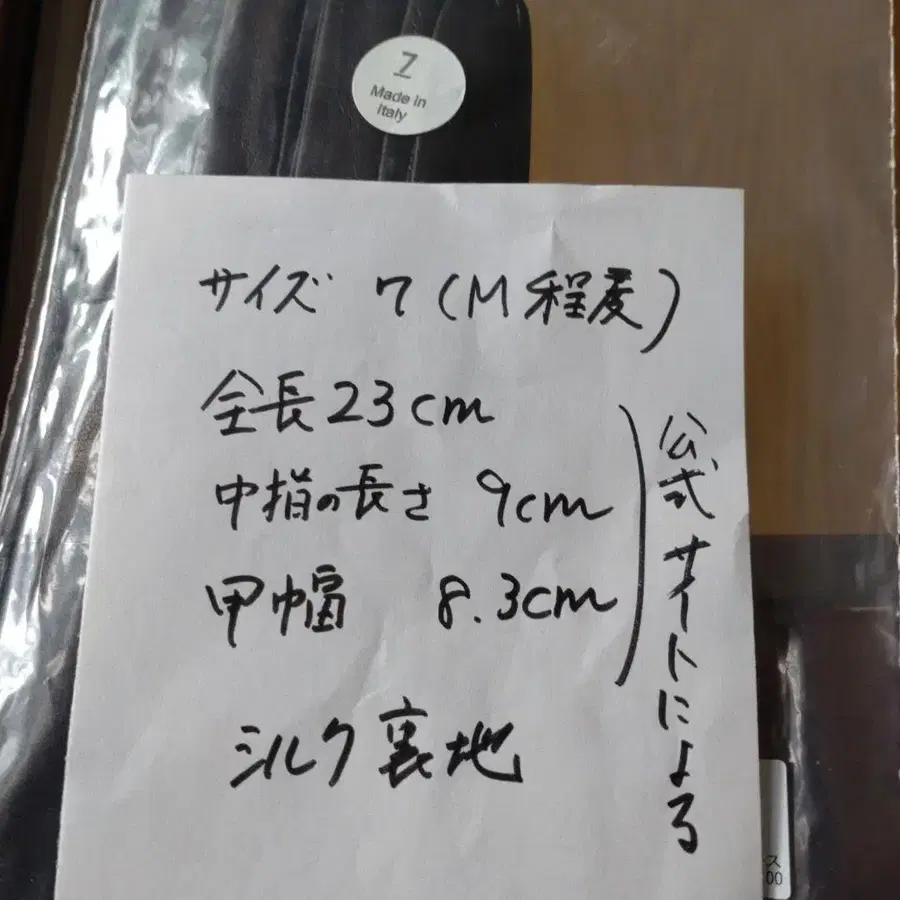 7
Made in
Italy
サイズ 7(M程度)
全長23cm
中指の長さ 9cm
甲幅 8.3cm
公式サイトによる
シルク裏地
ス
00